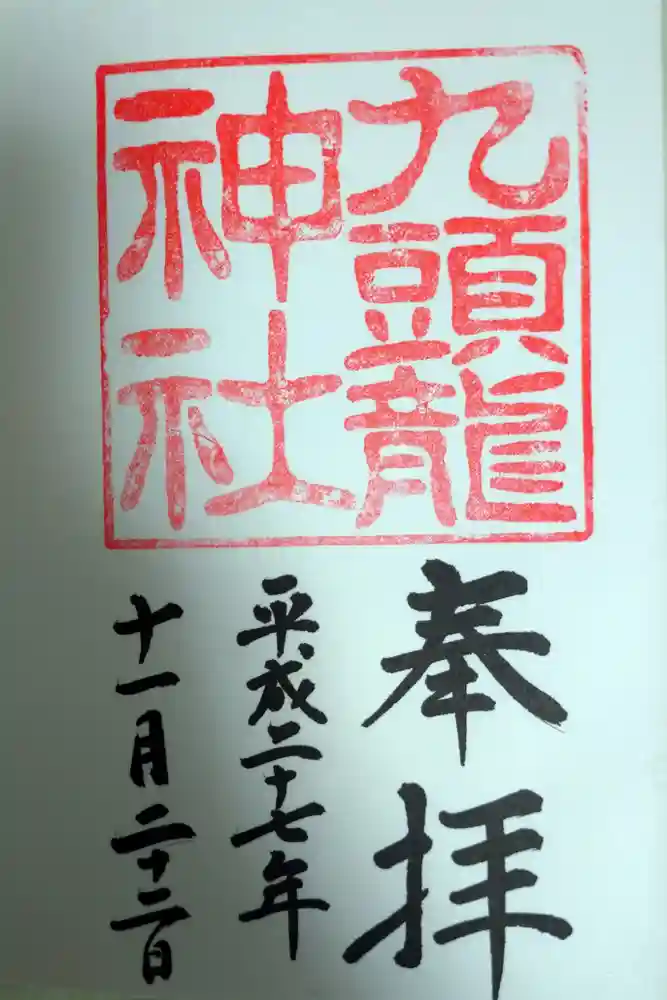 九頭龍
神社
奉拝
平成二十七年
十一月二十二日